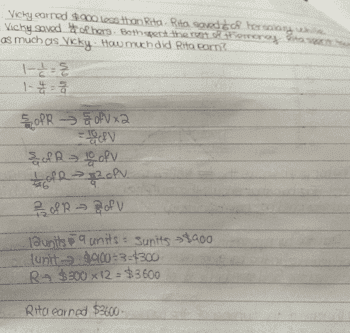 Vicky earned $900 less than Rita. Rita saved 1/6 of her salary while
Vicky saved 4/9 of hers. Both spent the rest of the money. Rita spent
as much as Vicky. How much did Rita earn?
1 - 1/6 = 5/6
1 - 4/9 = 5/9
5/6 of R → 5/9 of V x 2
= 10/9 of V
5/6 of R → 10/9 of V
1/6 of R → 2/9 of V
2/12 of R → 2/9 of V
12 units - 9 units = 3 units → $900
1 unit → $900 ÷ 3 = $300
R → $300 x 12 = $3600
Rita earned $3600.